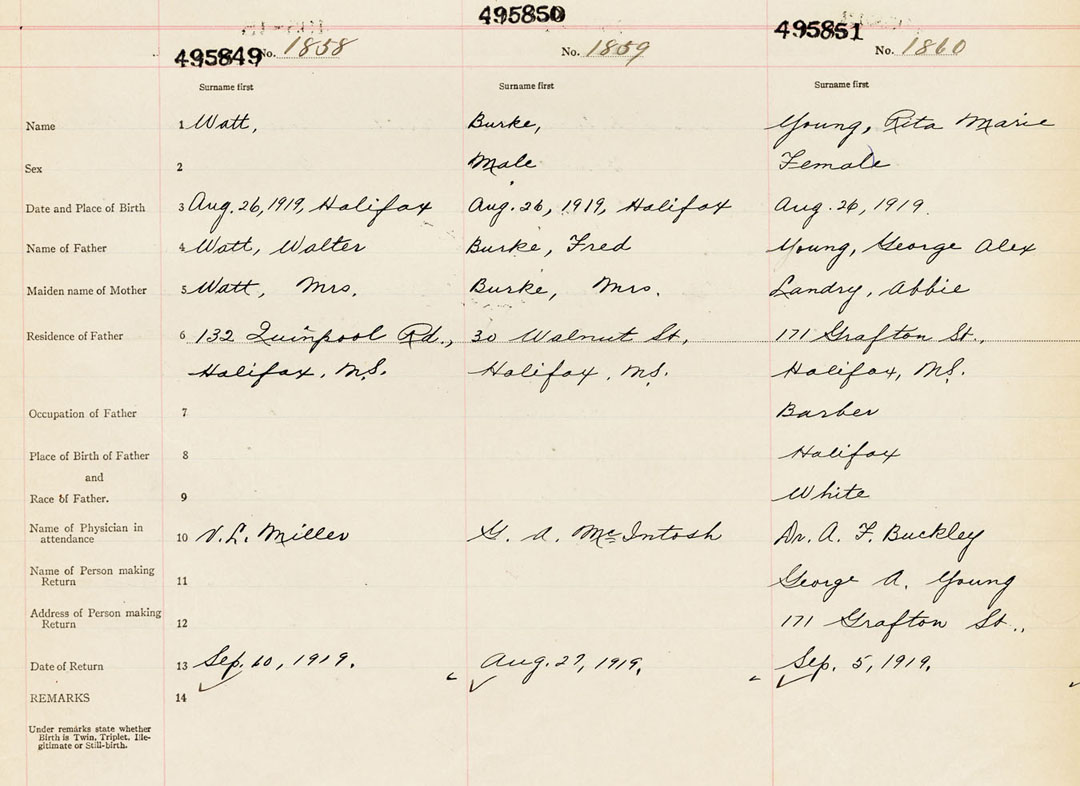 495849 495850 495851
No. 1858 No. 1859 No. 1860
Surname first Surname first Surname first
Name 1 Watt, Burke, Young, Rita Marie
Sex 2 Male Female
Date and Place of Birth 3 Aug. 26, 1919, Halifax Aug. 26, 1919, Halifax Aug. 26, 1919.
Name of Father 4 Watt, Walter Burke, Fred Young, George Alex
Maiden name of Mother 5 Watt, Mrs. Burke, Mrs. Landry, Abbie
Residence of Father 6 132 Quinpool Rd., 30 Walnut St, 171 Grafton St.,
Halifax, N.S. Halifax, N.S. Halifax, N.S.
Occupation of Father 7 Barber
Place of Birth of Father 8 Halifax
and
Race of Father. 9 White
Name of Physician in
attendance 10 V. L. Miller G. A. McIntosh Dr. A. F. Buckley
Name of Person making
Return 11 George A. Young
Address of Person making
Return 12 171 Grafton St.,
Date of Return 13 Sep. 10, 1919. Aug. 27, 1919. Sep. 5, 1919.
REMARKS 14
Under remarks state whether
Birth is Twin, Triplet, Ille-
gitimate or Still-birth.